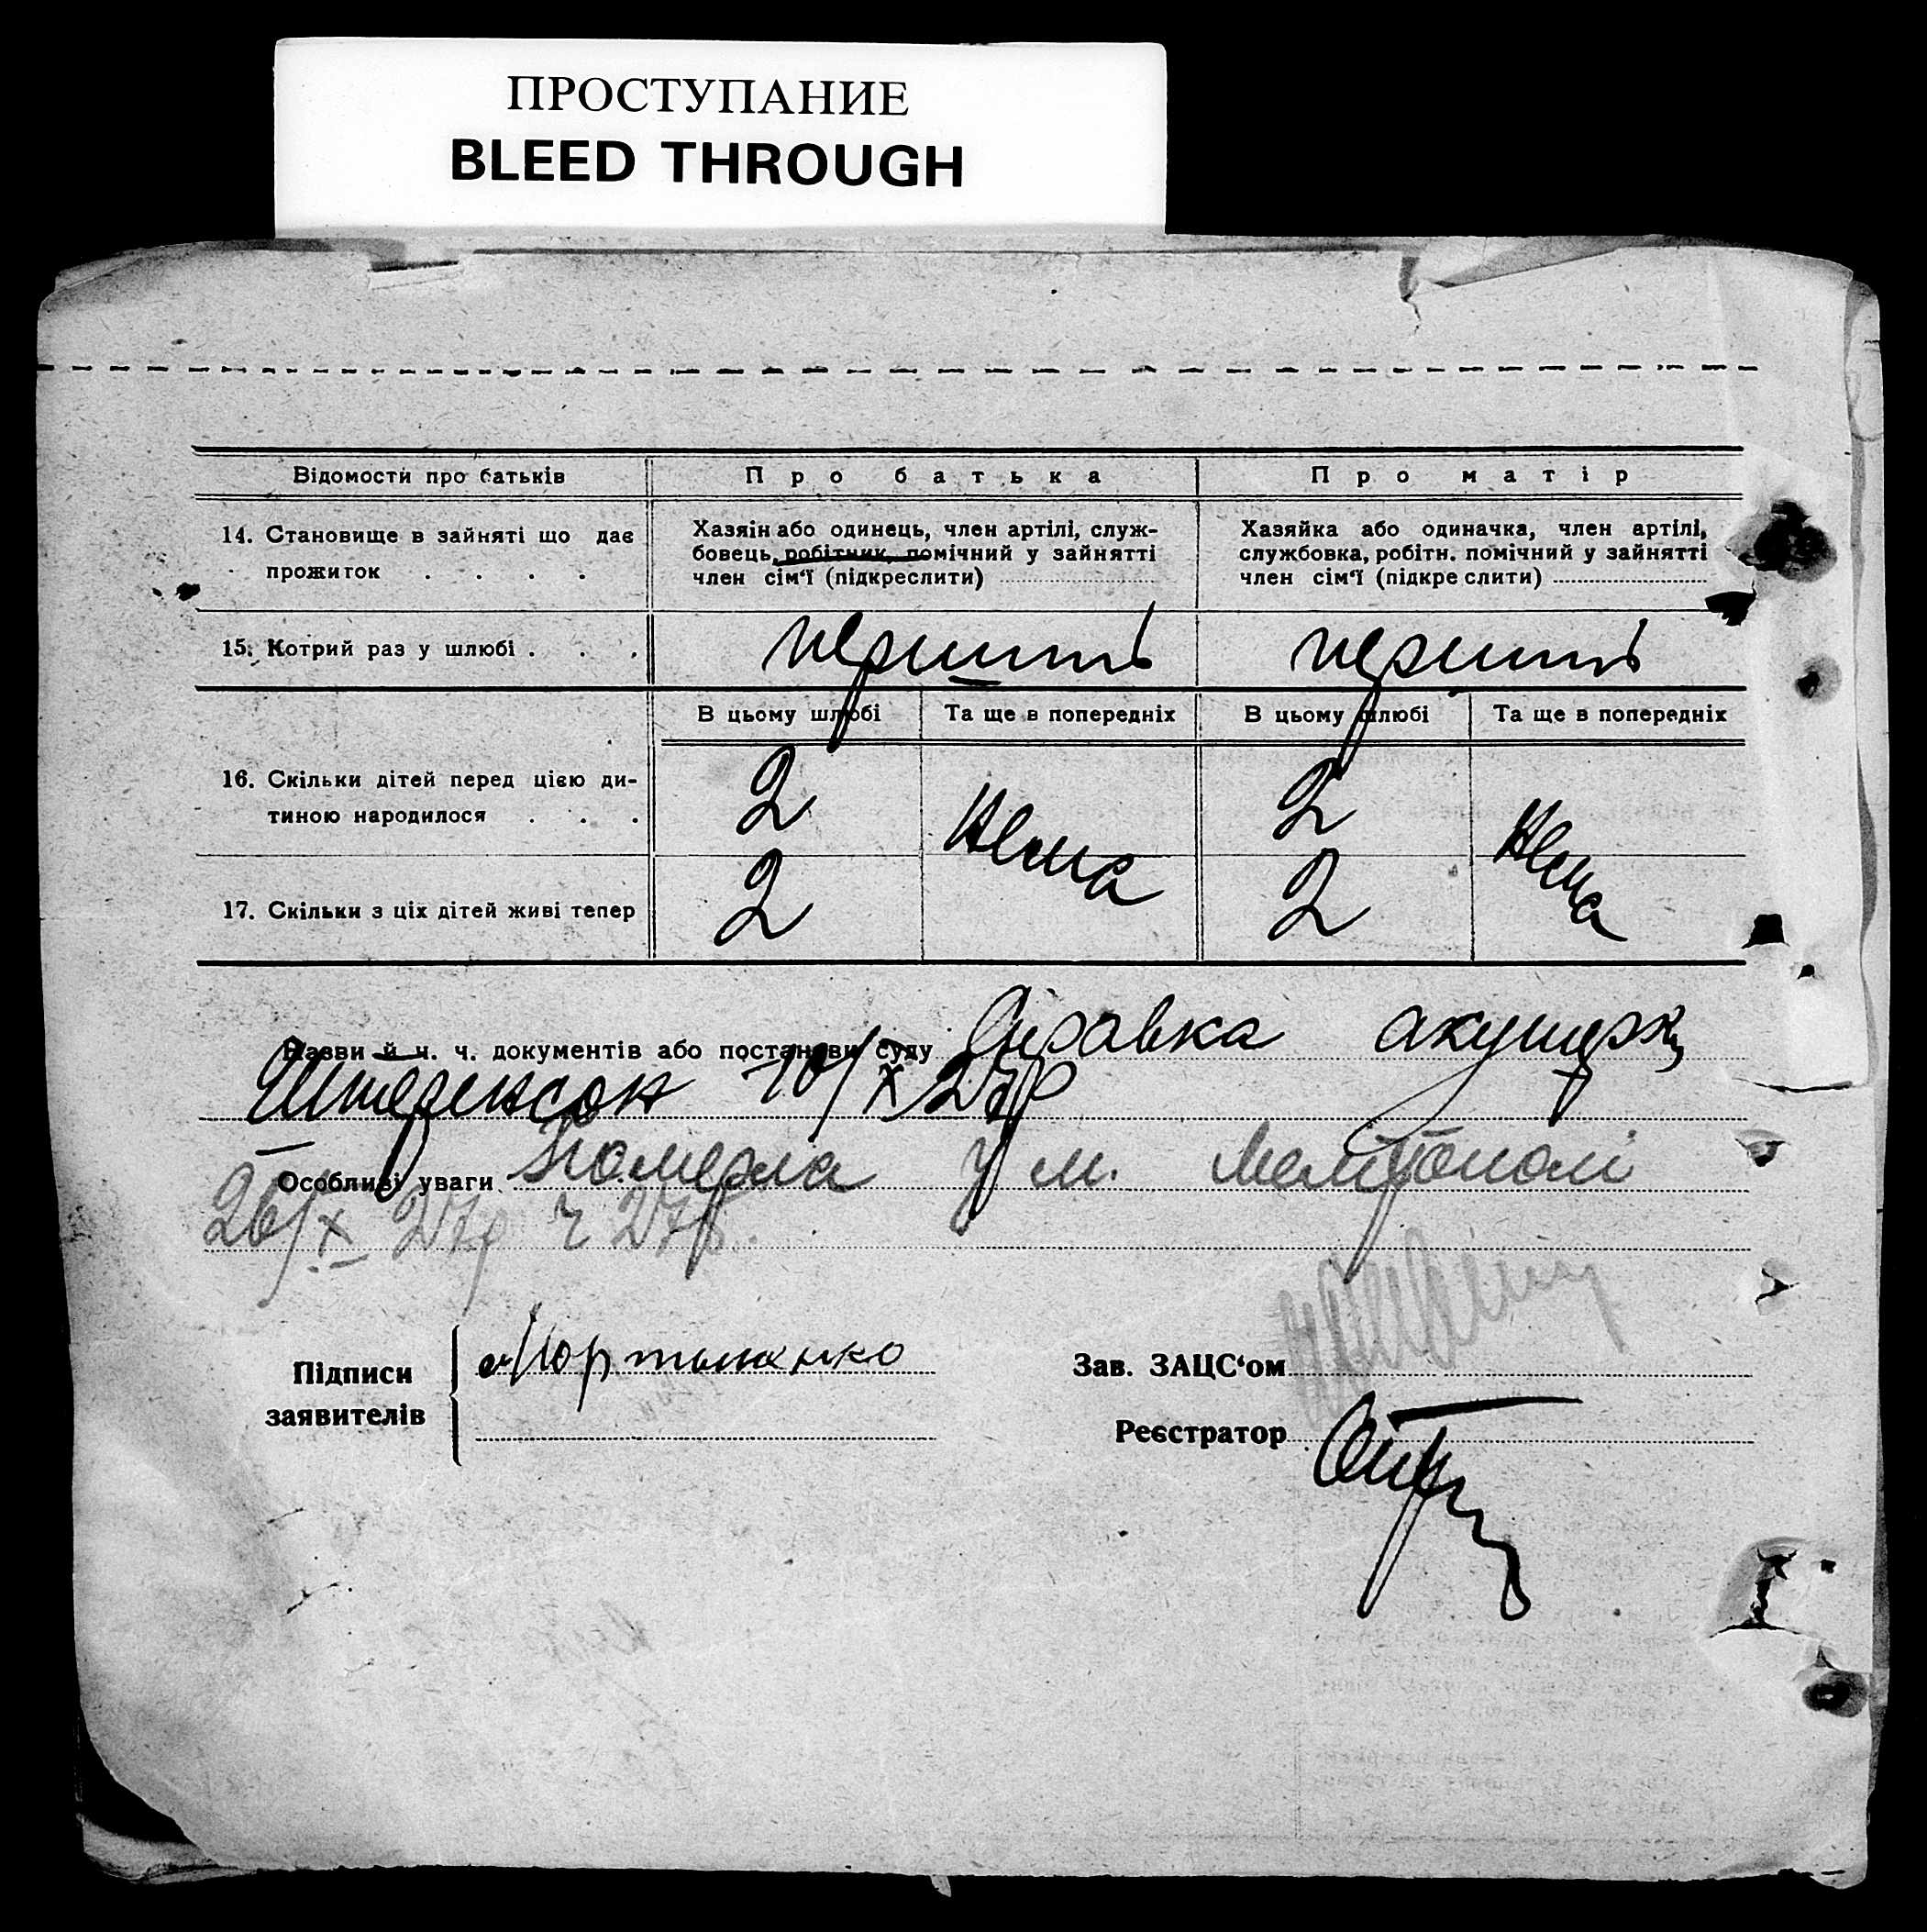 ПРОСТУПАНИЕ
BLEED THROUGH
Відомости про батьків
Про батька
Про матір
14. Становище в зайняті що дає
прожиток . . . .
Хазяїн або одинець, член артілі, служ-
бовець, робітник, помічний у зайнятті
член сім'ї (підкреслити)
Хазяйка або одиначка, член артілі,
службовка, робітн. помічний у зайнятті
член сім'ї (підкреслити)
15. Котрий раз у шлюбі . . .
перший
перший
В цьому шлюбі
Та ще в попередніх
В цьому шлюбі
Та ще в попередніх
16. Скільки дітей перед цією ди-
тиною народилося . . .
2
Нема
2
Нема
17. Скільки з ціх дітей живі тепер
2
2
Назви й ч. ч. документів або постанови суду Справка акушерки
10/X 27р
Особливі уваги Померла у м. Мелітополі
26/X 27р
Підписи
заявителів
Зав. ЗАЦС'ом
Реєстратор